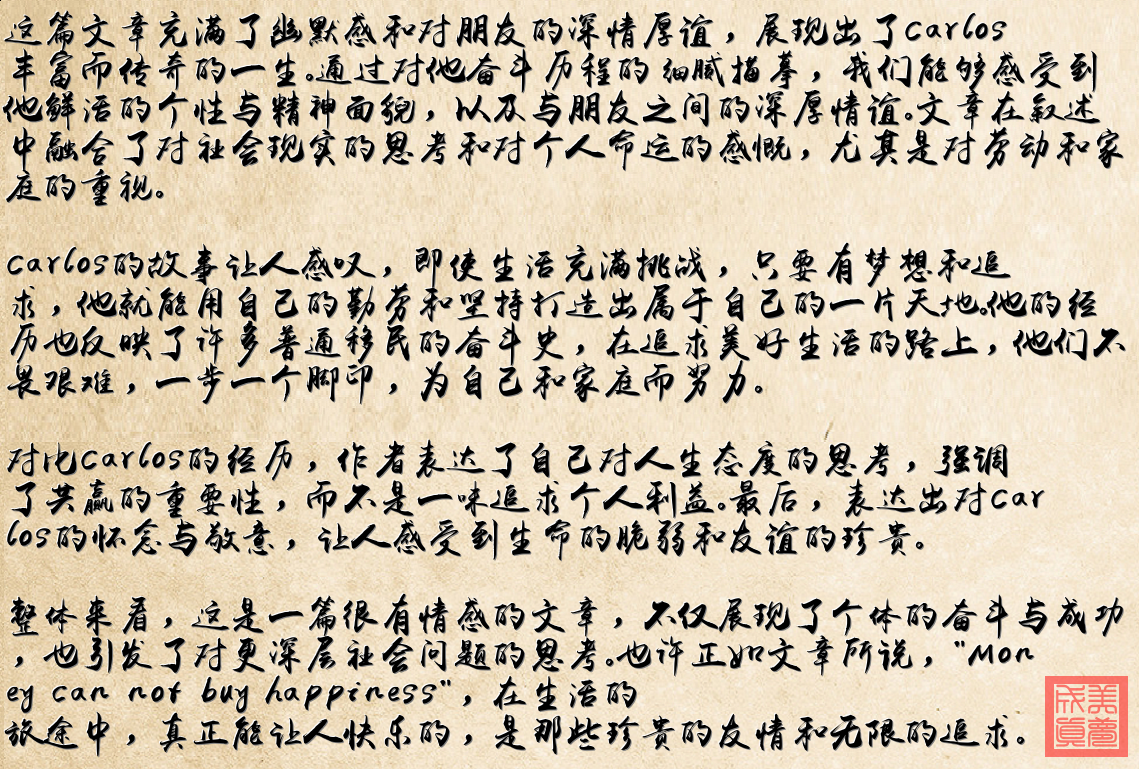 这篇文章充满了幽默感和对朋友的深情厚谊，展现出了carlos
丰富而传奇的一生。通过对他奋斗历程的细腻描摹，我们能够感受到
他鲜活的个性与精神面貌，以及与朋友之间的深厚情谊。文章在叙述
中融合了对社会现实的思考和对个人命运的感慨，尤其是对劳动和家
庭的重视。
carlos的故事让人感叹，即使生活充满挑战，只要有梦想和追
求，他就能用自己的勤劳和坚持打造出属于自己的一片天地。他的经
历也反映了许多普通移民的奋斗史，在追求美好生活的路上，他们不
畏艰难，一步一个脚印，为自己和家庭而努力。
对比carlos的经历，作者表达了自己对人生态度的思考，强调
了共赢的重要性，而不是一味追求个人利益。最后，表达出对car
los的怀念与敬意，让人感受到生命的脆弱和友谊的珍贵。
整体来看，这是一篇很有情感的文章，不仅展现了个体的奋斗与成功
，也引发了对更深层社会问题的思考。也许正如文章所说，“Mon
ey can not buy happiness”，在生活的
旅途中，真正能让人快乐的，是那些珍贵的友情和无限的追求。